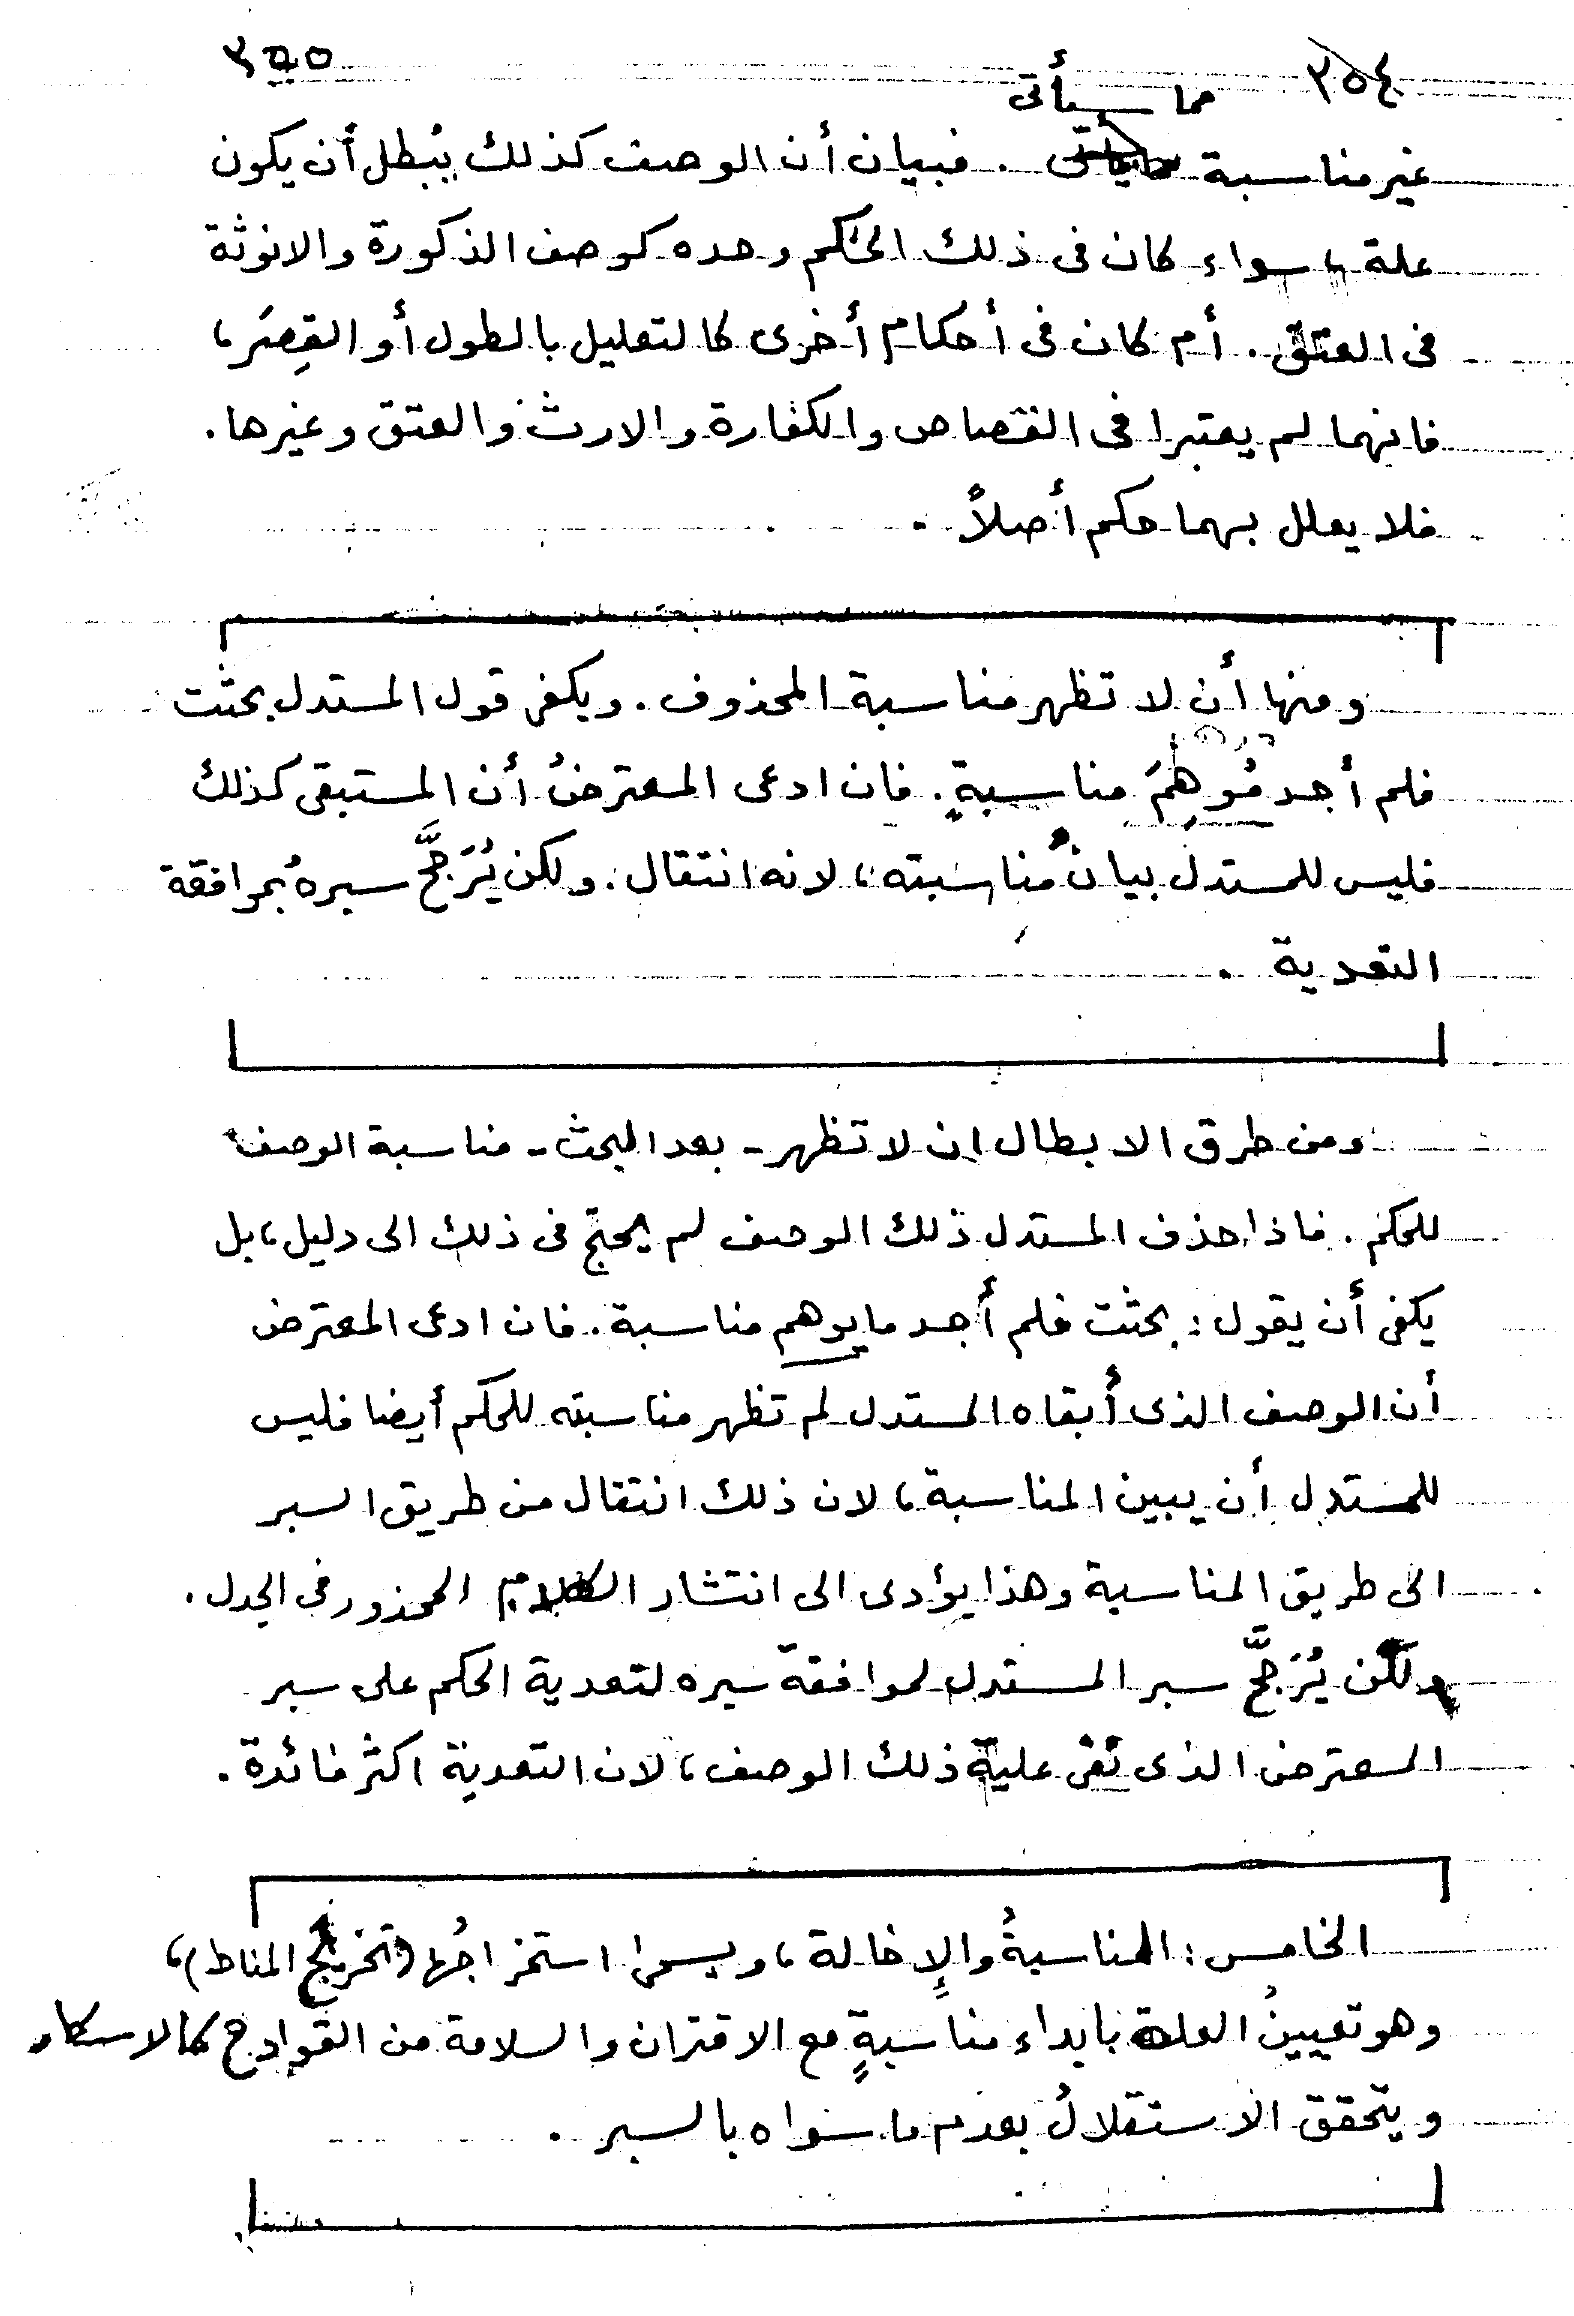 ٣٥٤ ٣٥٥
مما سيأتى
غير مناسبة . فبيان أن الوصف كذلك يُبطل أن يكون
علة ، سواء كان فى ذلك الحكم وحده كوصف الذكورة والانوثة
فى العتق . أم كان فى أحكام أخرى كالتعليل بالطول أو القِصَر ،
فانهما لم يعتبرا فى القصاص والكفارة والارث والعتق وغيرها .
فلا يعلل بهما حكم أصلاً .
ومنها أن لا تظهر مناسبة المحذوف . ويكفى قول المستدل بحثت
فلم أجد مُوهِمَ مناسبةٍ . فان ادعى المعترضُ أن المستبقى كذلك
فليس للمستدل بيانُ مُناسبته ، لانه انتقال . ولكن يُرَجَّح سبرهُ بموافقة
التعدية .
ومن طرق الابطال ان لا تظهر - بعد البحث - مناسبة الوصف
للحكم . فاذا حذف المستدل ذلك الوصف لم يحتج فى ذلك الى دليل ، بل
يكفى أن يقول : بحثت فلم أجد ما يوهم مناسبة . فان ادعى المعترض
أن الوصف الذى أبقاه المستدل لم تظهر مناسبته للحكم أيضا فليس
للمستدل أن يبين المناسبة ، لان ذلك انتقال من طريق السبر
الى طريق المناسبة وهذا يؤدى الى انتشار الكلام المحذور فى الجدل .
ولكن يُرَجَّح سبر المستدل لموافقة سبره لتعدية الحكم على سبر
المعترض الذى نفى علية ذلك الوصف ، لان التعدية اكثر فائدة .
الخامس : المناسبةُ والإِخالة ، ويسمى استخراجُها (تخريجَ المناط) ،
وهو تعيينُ العلة بابداء مناسبةٍ مع الاقتران والسلامة من القوادح كالاسكار
ويتحقق الاستقلالُ بعدم ما سواه بالسبر .